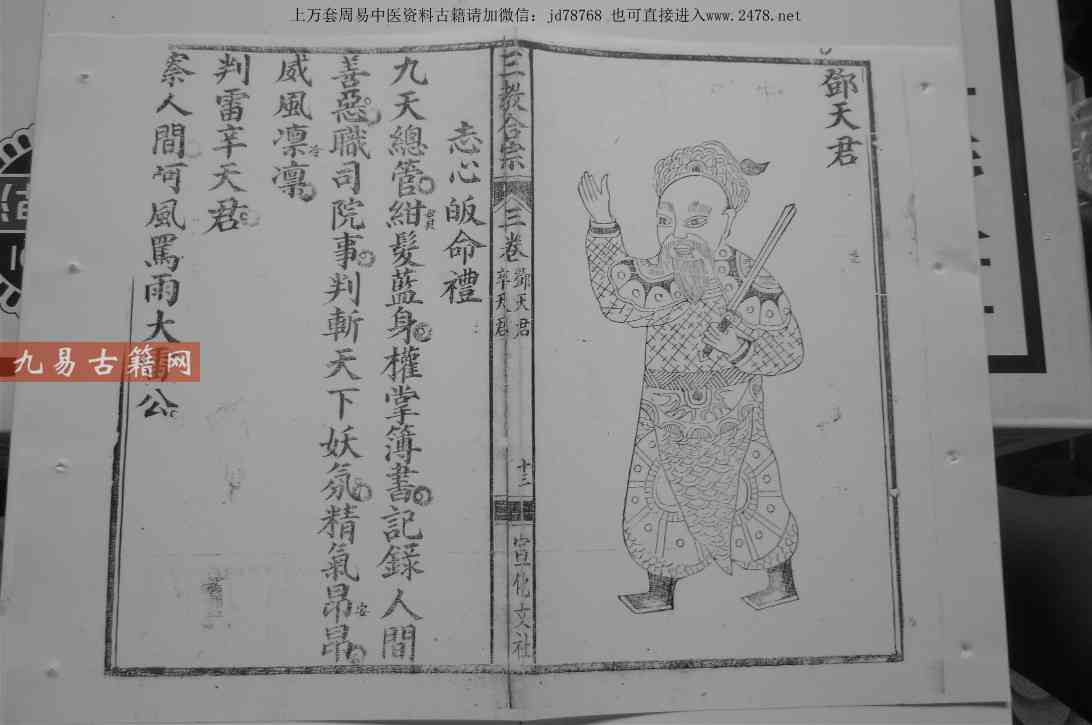 上万套周易中医资料古籍请加微信：jd78768 也可直接进入www.2478.net
鄧天君
三教合宗
三卷
鄧天君
辛天君
十三
宣化文社
志心皈命禮
九天總管紺髮藍身權掌簿書記錄人間
善惡職司院事判斬天下妖氛精氣昂昂
威風凛凛
判雷辛天君
察人間呵風罵雨大雷公
九易古籍网